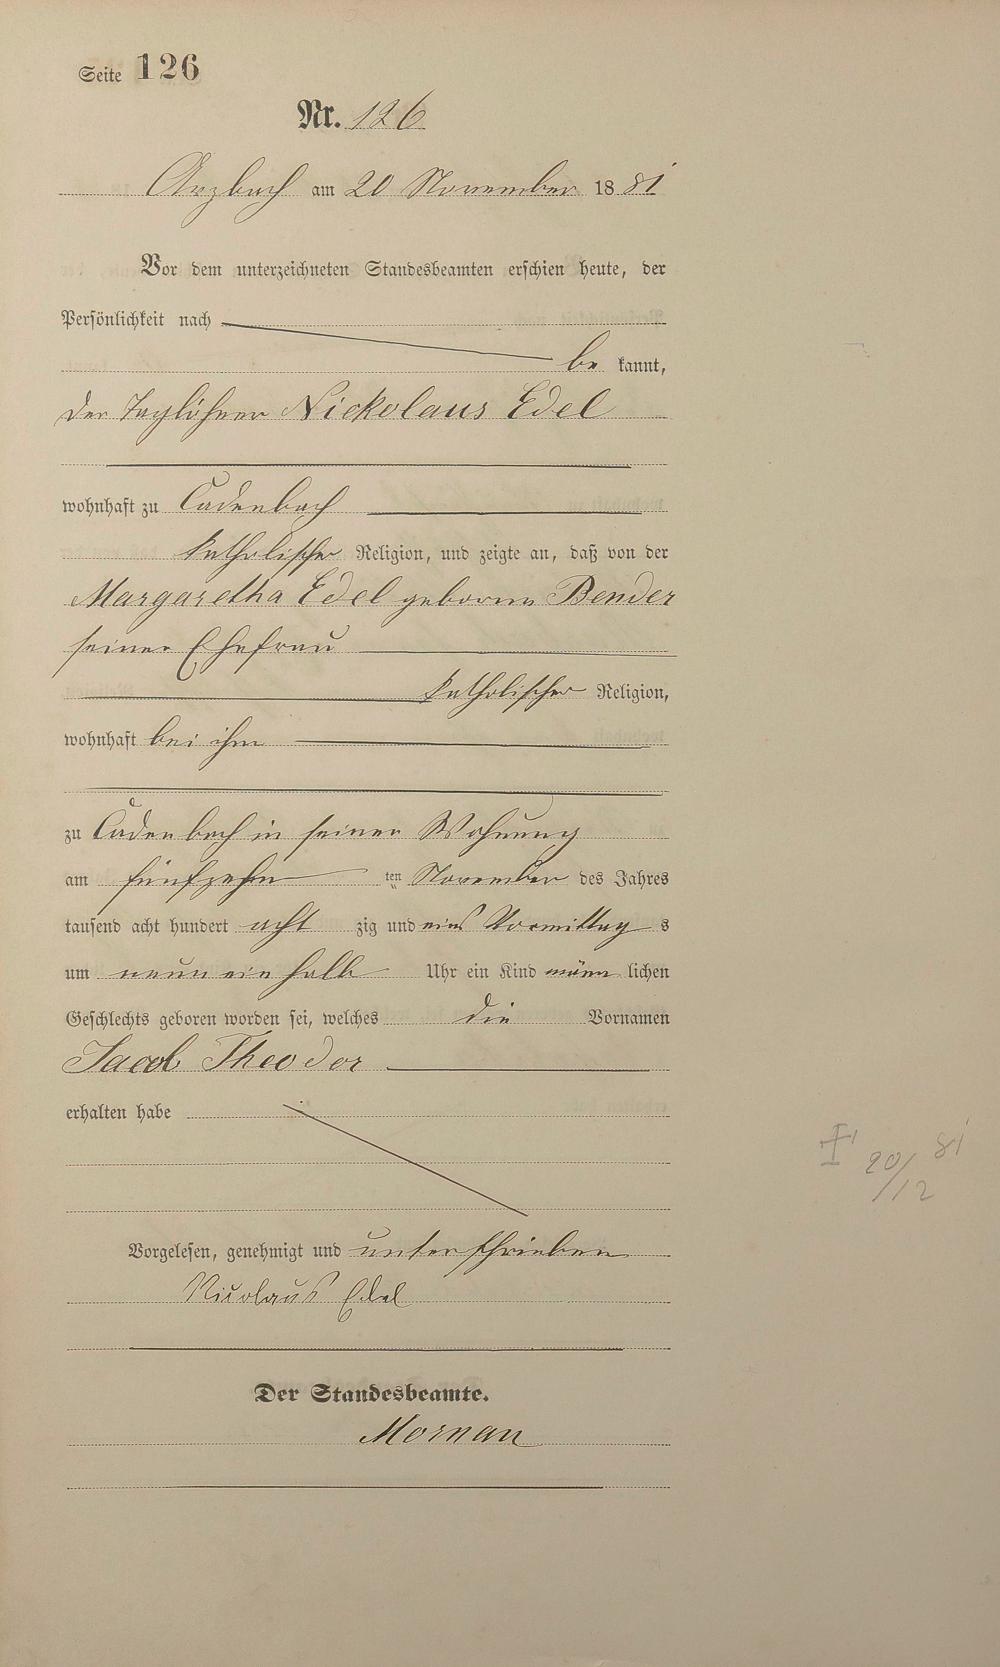 Seite 126
Nr. 126
Arzbach am 20 November 1881
Vor dem unterzeichneten Standesbeamten erschien heute, der
Persönlichkeit nach
be kannt,
der Taglöhner Nickolaus Edel
wohnhaft zu Cadenbach
katholischer Religion, und zeigte an, daß von der
Margaretha Edel geborene Bender
seiner Ehefrau
katholischer Religion,
wohnhaft bei ihm
zu Cadenbach in seiner Wohnung
am fünfzehn ten November des Jahres
tausend acht hundert acht zig und eins Vormittag s
um neun ein halb Uhr ein Kind männ lichen
Geschlechts geboren worden sei, welches die Vornamen
Jacob Theodor
erhalten habe
Vorgelesen, genehmigt und unterschrieben
Nicolaus Edel
Der Standesbeamte.
Mornau
20/12 81